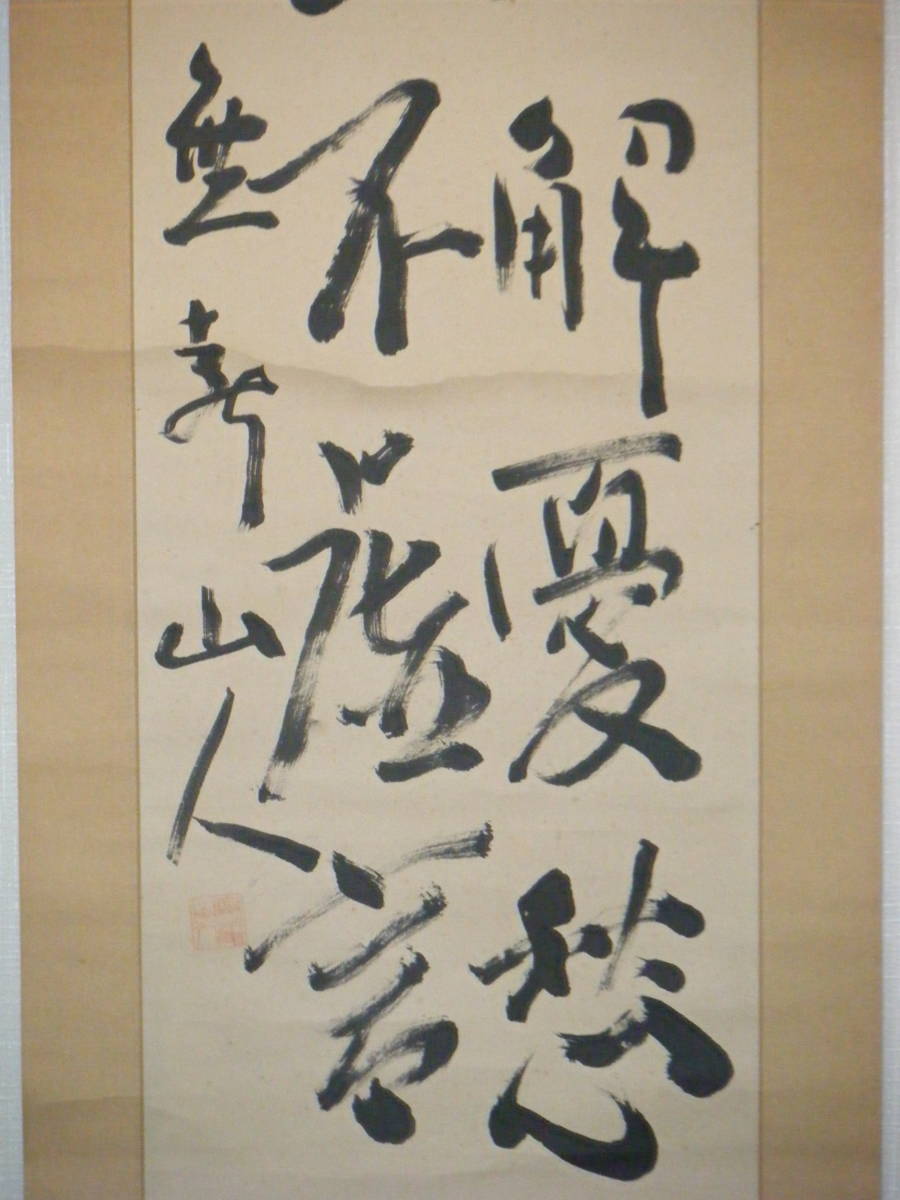 解憂愁
不虚言
無壽山人